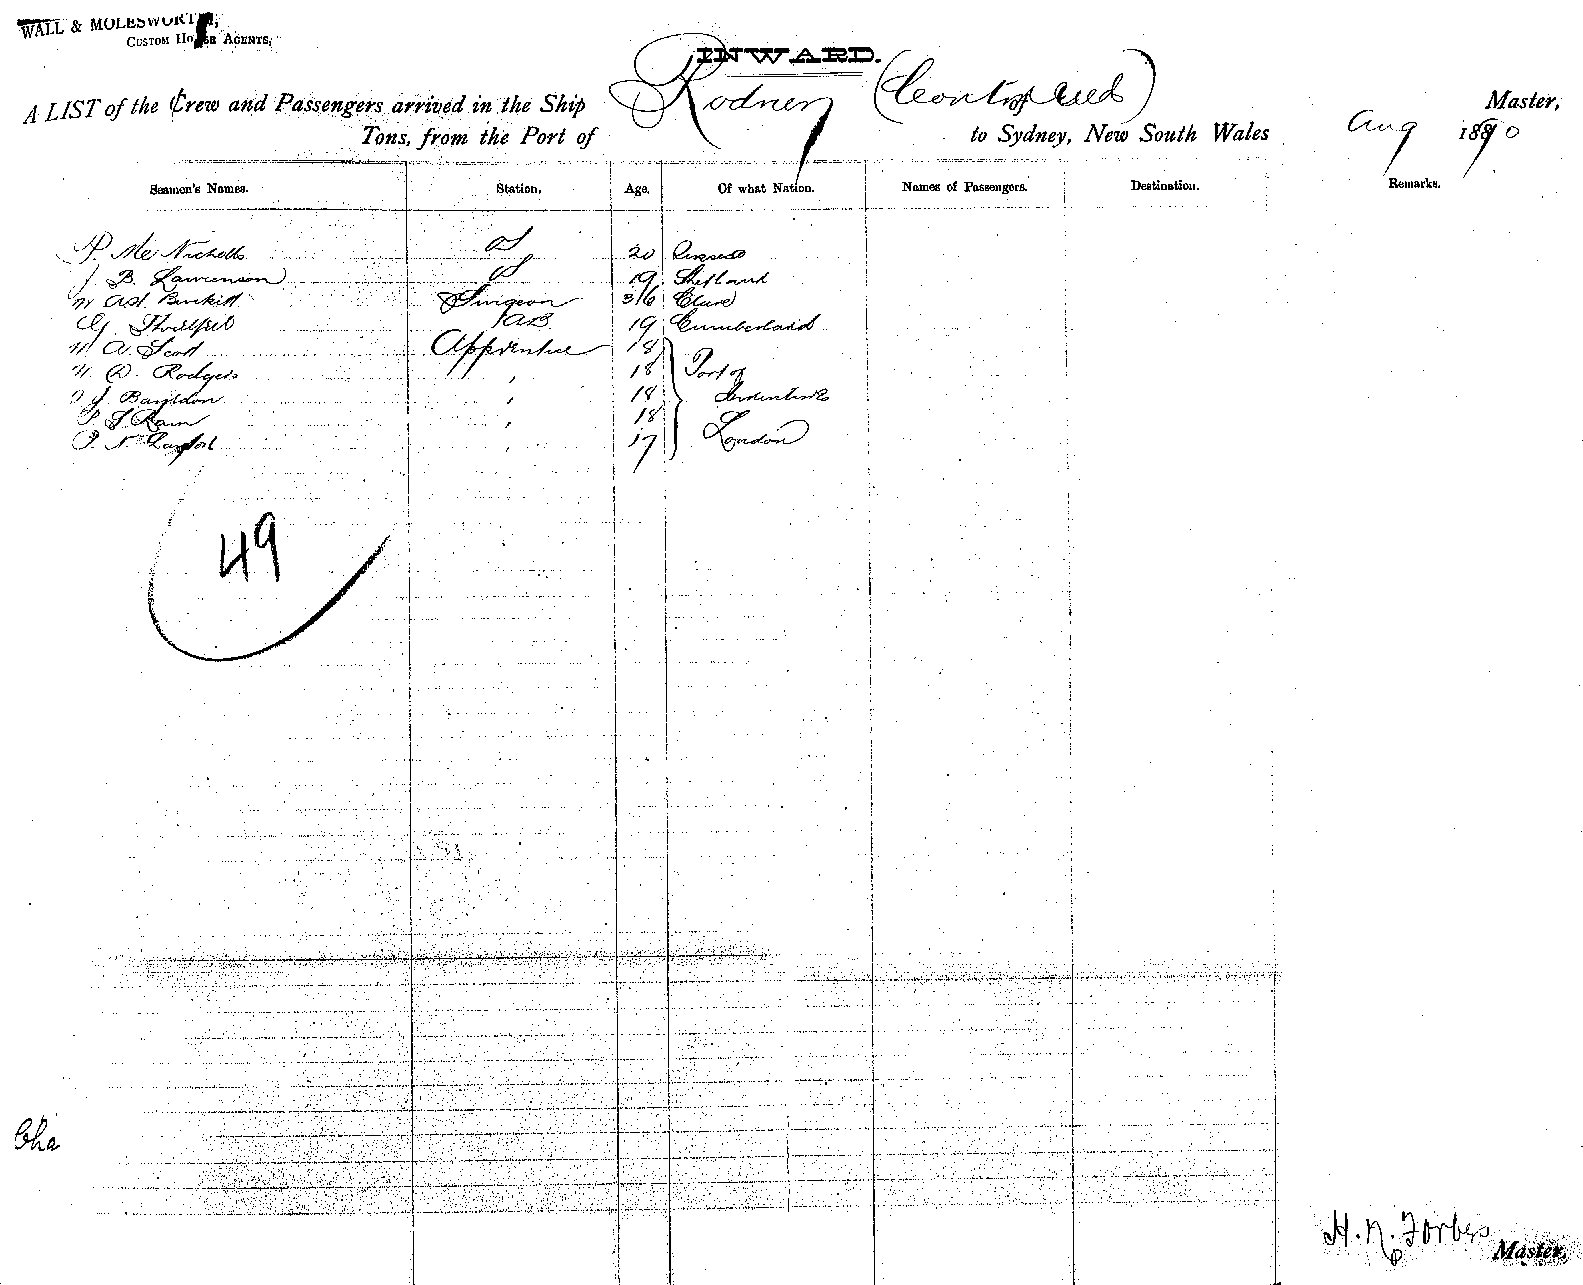 WALL & MOLESWORTH,
CUSTOM HOUSE AGENTS,
INWARD.
A LIST of the Crew and Passengers arrived in the Ship Rodney (Continued) Master,
Tons, from the Port of to Sydney, New South Wales Aug 1890
Seamen's Names. Station. Age. Of what Nation. Names of Passengers. Destination. Remarks.
P. Mc Nicholls OS 20
J B. Lawrenson OS 19 Shetland
Surgeon 36 Clare
G. AB 19 Cumberland
W A. Scott Apprentice 18
W. D. Rodgers " 18 Port of
J. " 18 Indentures
P S Ram " 18
P. N. " 17 London
49
Cha
H. N. Forbes
Master,